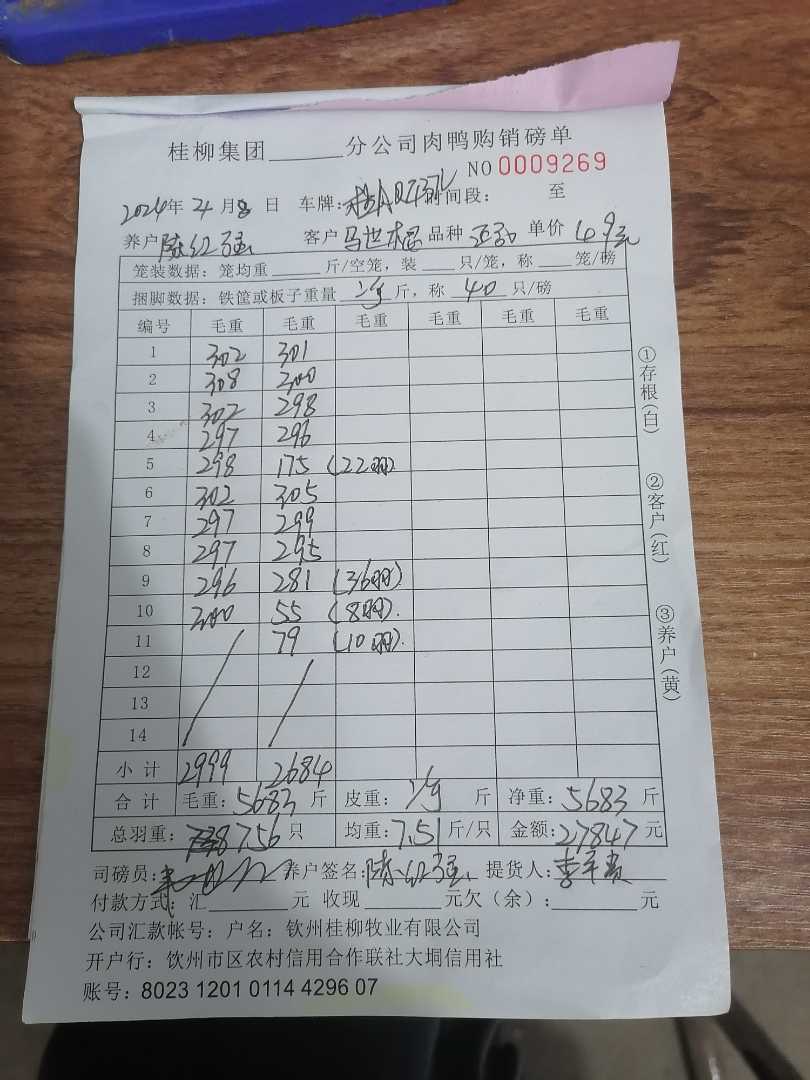 桂柳集团______分公司肉鸭购销磅单
NO 0009269
2024年4月8日 车牌: 时间段: 至
养户 陈红强 客户 马世 品种 单价 4.9元
笼装数据: 笼均重____斤/空笼, 装___只/笼, 称___笼/磅
捆脚数据: 铁筐或板子重量 斤, 称 40 只/磅
编号 毛重 毛重 毛重 毛重 毛重 毛重
1 302 301
2 308 300
3 302 298
4 297 296
5 298 175 (22羽)
6 302 305
7 297 299
8 297 295
9 296 281 (36羽)
10 300 55 (8羽).
11 79 (10羽).
12
13
14
小计 2999 2684
合计 毛重: 5683 斤 皮重: 斤 净重: 5683 斤
总羽重: 756 只 均重: 7.51 斤/只 金额: 27847 元
司磅员: 养户签名: 陈红强 提货人: 李
付款方式: 汇______元 收现______元欠(余): ______元
公司汇款帐号: 户名: 钦州桂柳牧业有限公司
开户行: 钦州市区农村信用合作联社大垌信用社
账号: 8023 1201 0114 4296 07
①存根(白)
②客户(红)
③养户(黄)